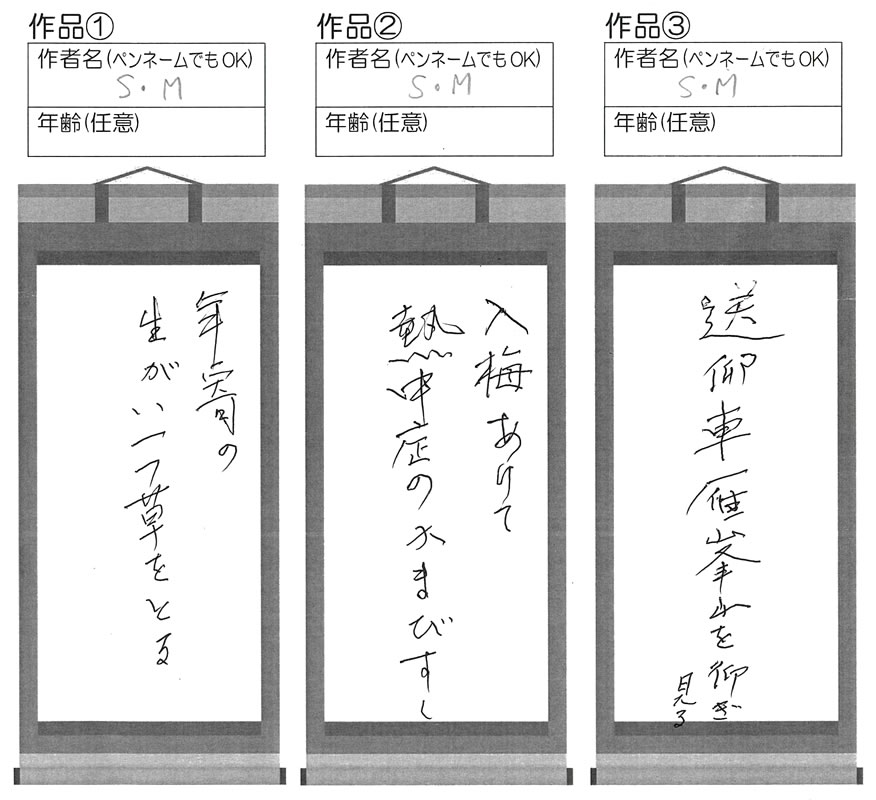 作品①
作者名(ペンネームでもOK)
S・M
年齢(任意)
年寄の
生がい一つ草をとる
作品②
作者名(ペンネームでもOK)
S・M
年齢(任意)
入梅あけて
熱中症のかまびすし
作品③
作者名(ペンネームでもOK)
S・M
年齢(任意)
送仰車雁峯山を仰ぎ
見る